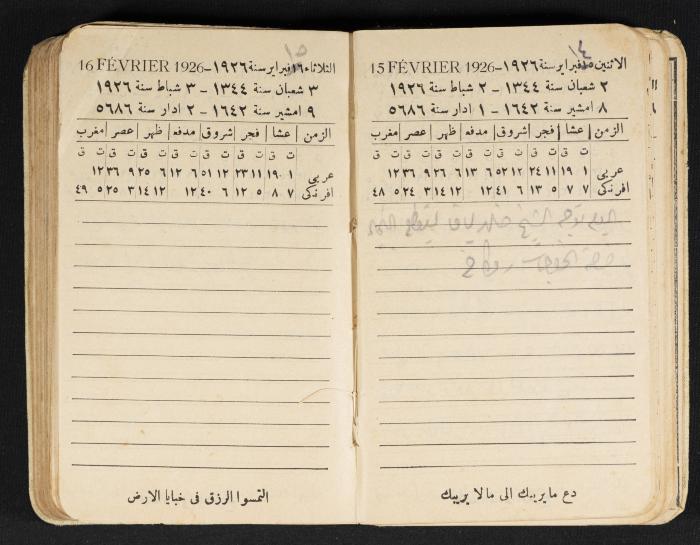 الاثنين ١٥ فبراير سنة ١٩٢٦ - 15 FÉVRIER 1926
١٤
٢ شعبان سنة ١٣٤٤ - ٢ شباط سنة ١٩٢٦
٨ امشير سنة ١٦٤٢ - ١ ادار سنة ٥٦٨٦
الزمن | عشا | فجر | شروق | مدفع | ظهر | عصر | مغرب
ت ق ت ق ت ق ت ق ت ق ت ق ت ق
عربي ١ ١٩ ١١ ٢٤ ١٢ ٥٢ ٦ ١٣ ٦ ٢٦ ٩ ٣٦ ١٢
افرنكى ٧ ٧ ٥ ١٣ ٦ ٤١ ١٢ ١٢ ١٤ ٣ ٢٤ ٥ ٤٨
اليوم توجه الشيخ
دع ما يريبك الى ما لا يريبك
الثلاثاء ١٦ فبراير سنة ١٩٢٦ - 16 FÉVRIER 1926
١٥
٣ شعبان سنة ١٣٤٤ - ٣ شباط سنة ١٩٢٦
٩ امشير سنة ١٦٤٢ - ٢ ادار سنة ٥٦٨٦
الزمن | عشا | فجر | شروق | مدفع | ظهر | عصر | مغرب
ت ق ت ق ت ق ت ق ت ق ت ق ت ق
عربي ١ ١٩ ١١ ٢٣ ١٢ ٥١ ٦ ١٢ ٦ ٢٥ ٩ ٣٦ ١٢
افرنكى ٧ ٨ ٥ ١٢ ٦ ٤٠ ١٢ ١٢ ١٤ ٣ ٢٥ ٥ ٤٩
التمسوا الرزق فى خبايا الارض